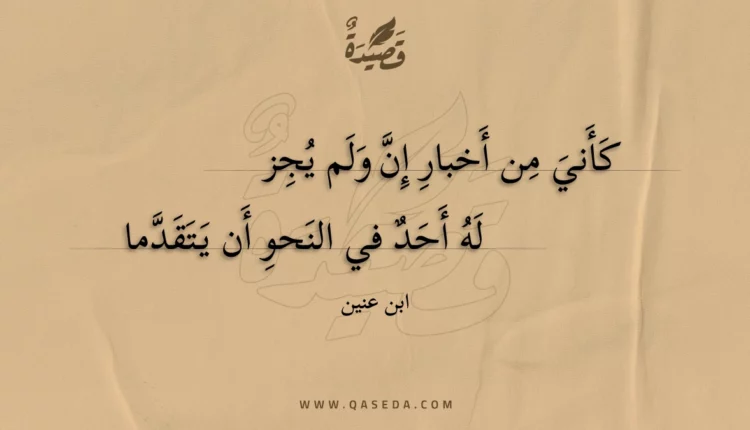 قَصِيدَةٌ
كَأَنيَ مِن أَخبارِ إِنَّ وَلَم يُجِز
لَهُ أَحَدٌ في النَحوِ أَن يَتَقَدَّما
ابن عنين
WWW.QASEDA.COM